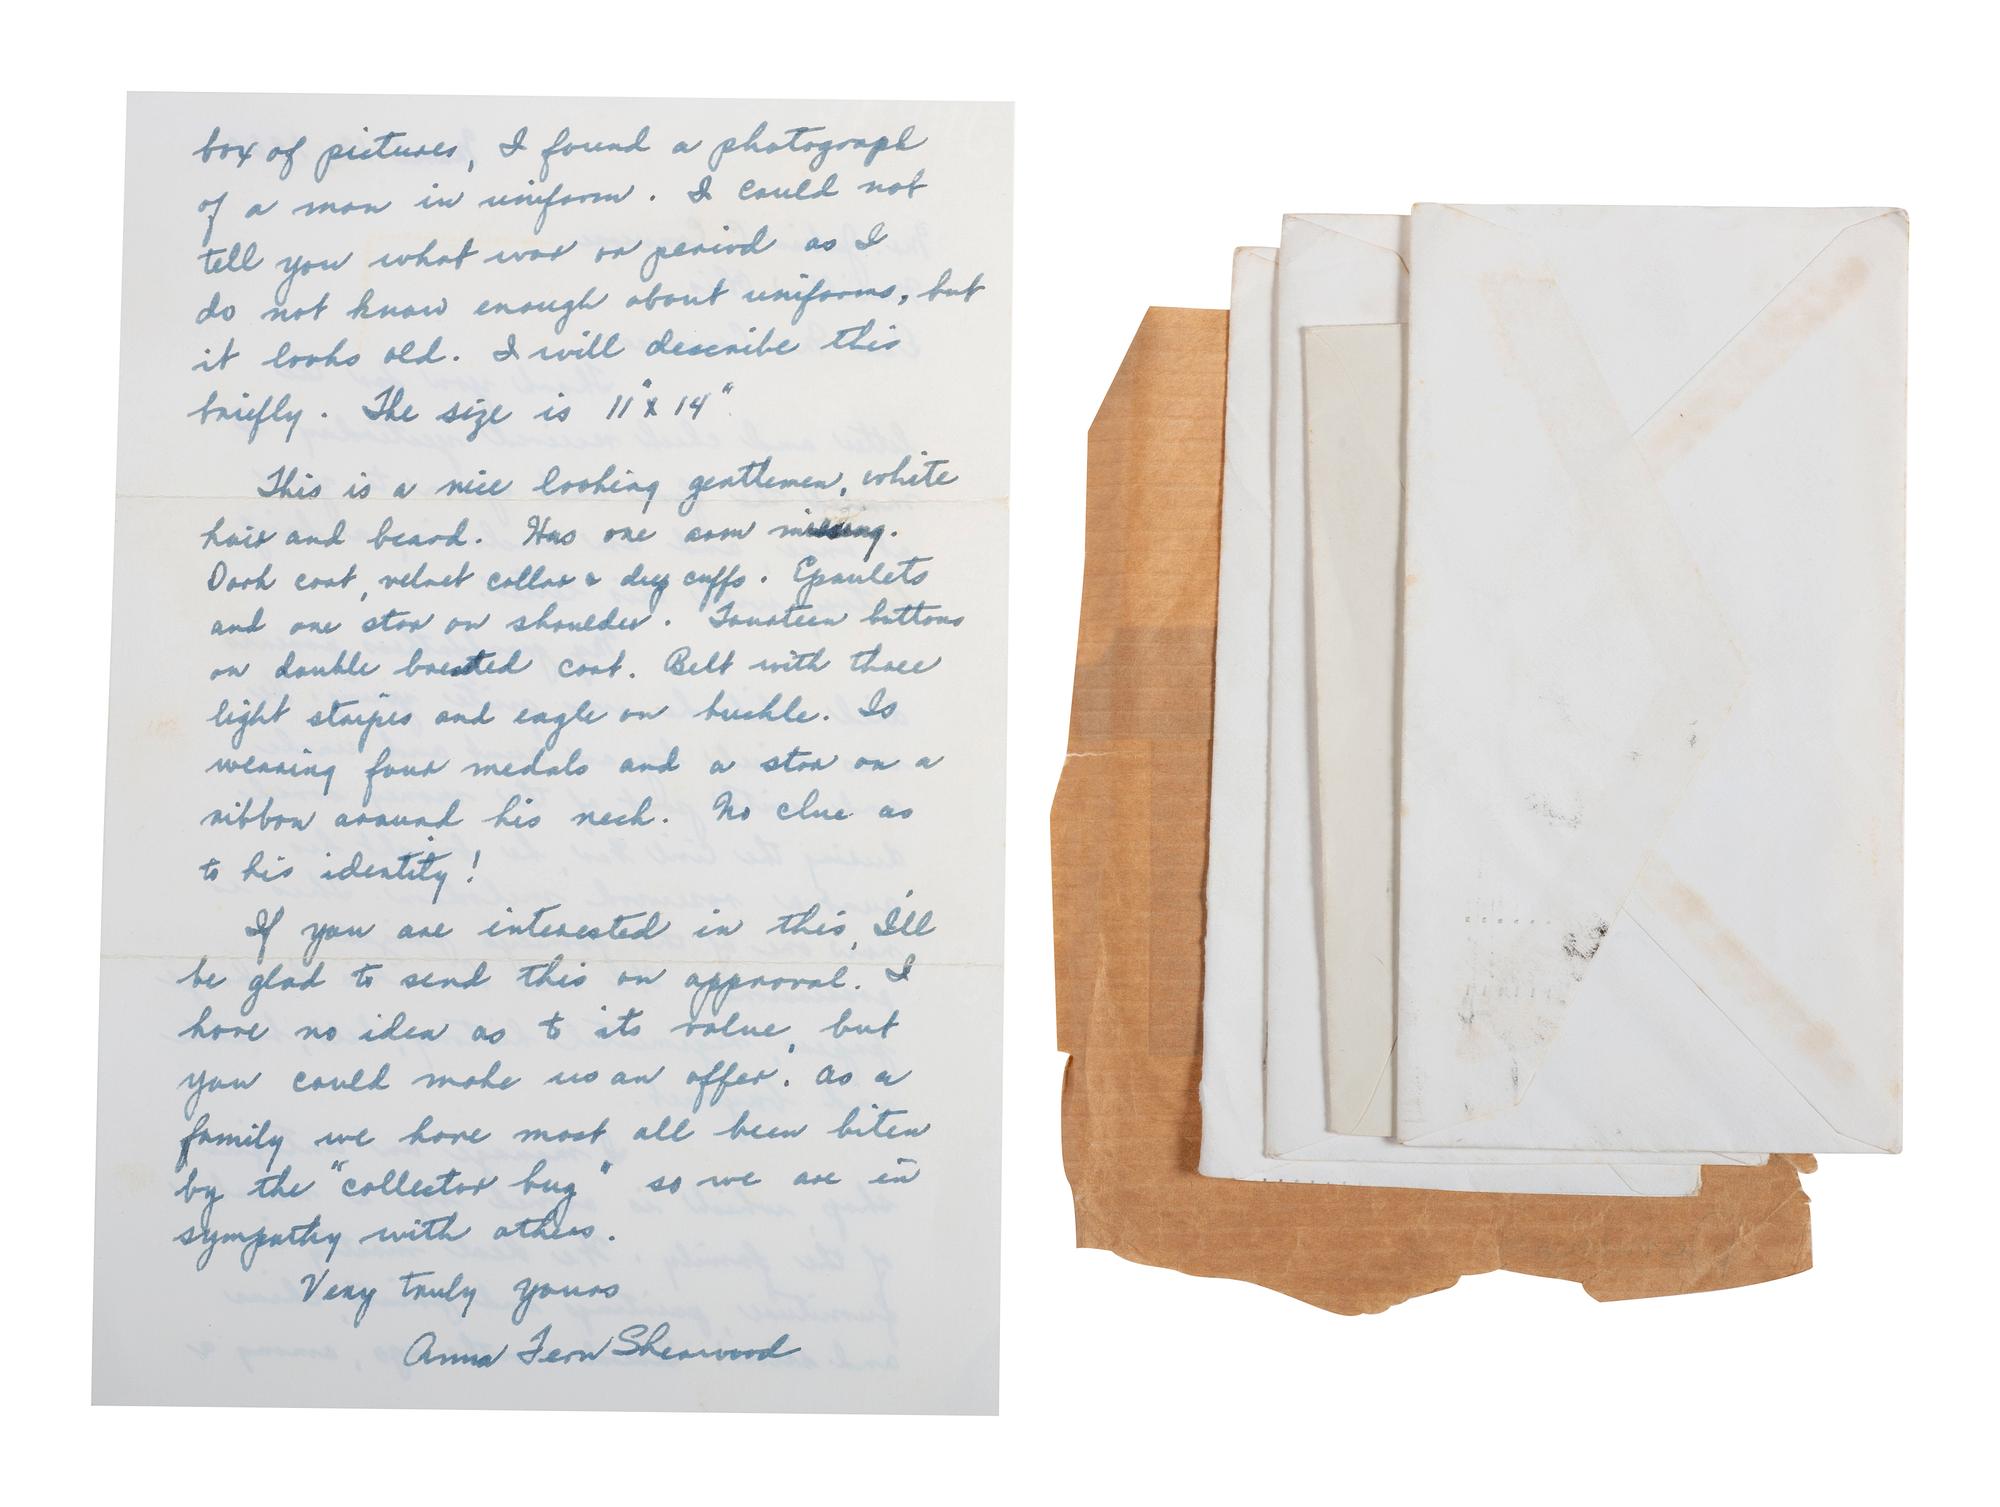 box of pictures, I found a photograph
of a man in uniform. I could not
tell you what war or period as I
do not know enough about uniforms, but
it looks old. I will describe this
briefly. The size is 11" x 14"
This is a nice looking gentlemen, white
hair and beard. Has one arm missing.
Dark coat, velvet collar & deep cuffs. Epaulets
and one star on shoulder. Fourteen buttons
on double breasted coat. Belt with three
light stripes and eagle on buckle. Is
wearing four medals and a star on a
ribbon around his neck. No clue as
to his identity!
If you are interested in this, I'll
be glad to send this on approval. I
have no idea as to its value, but
you could make us an offer. As a
family we have most all been biten
by the "collector bug" so we are in
sympathy with others.
Very truly yours
Anna Fern Sherwood